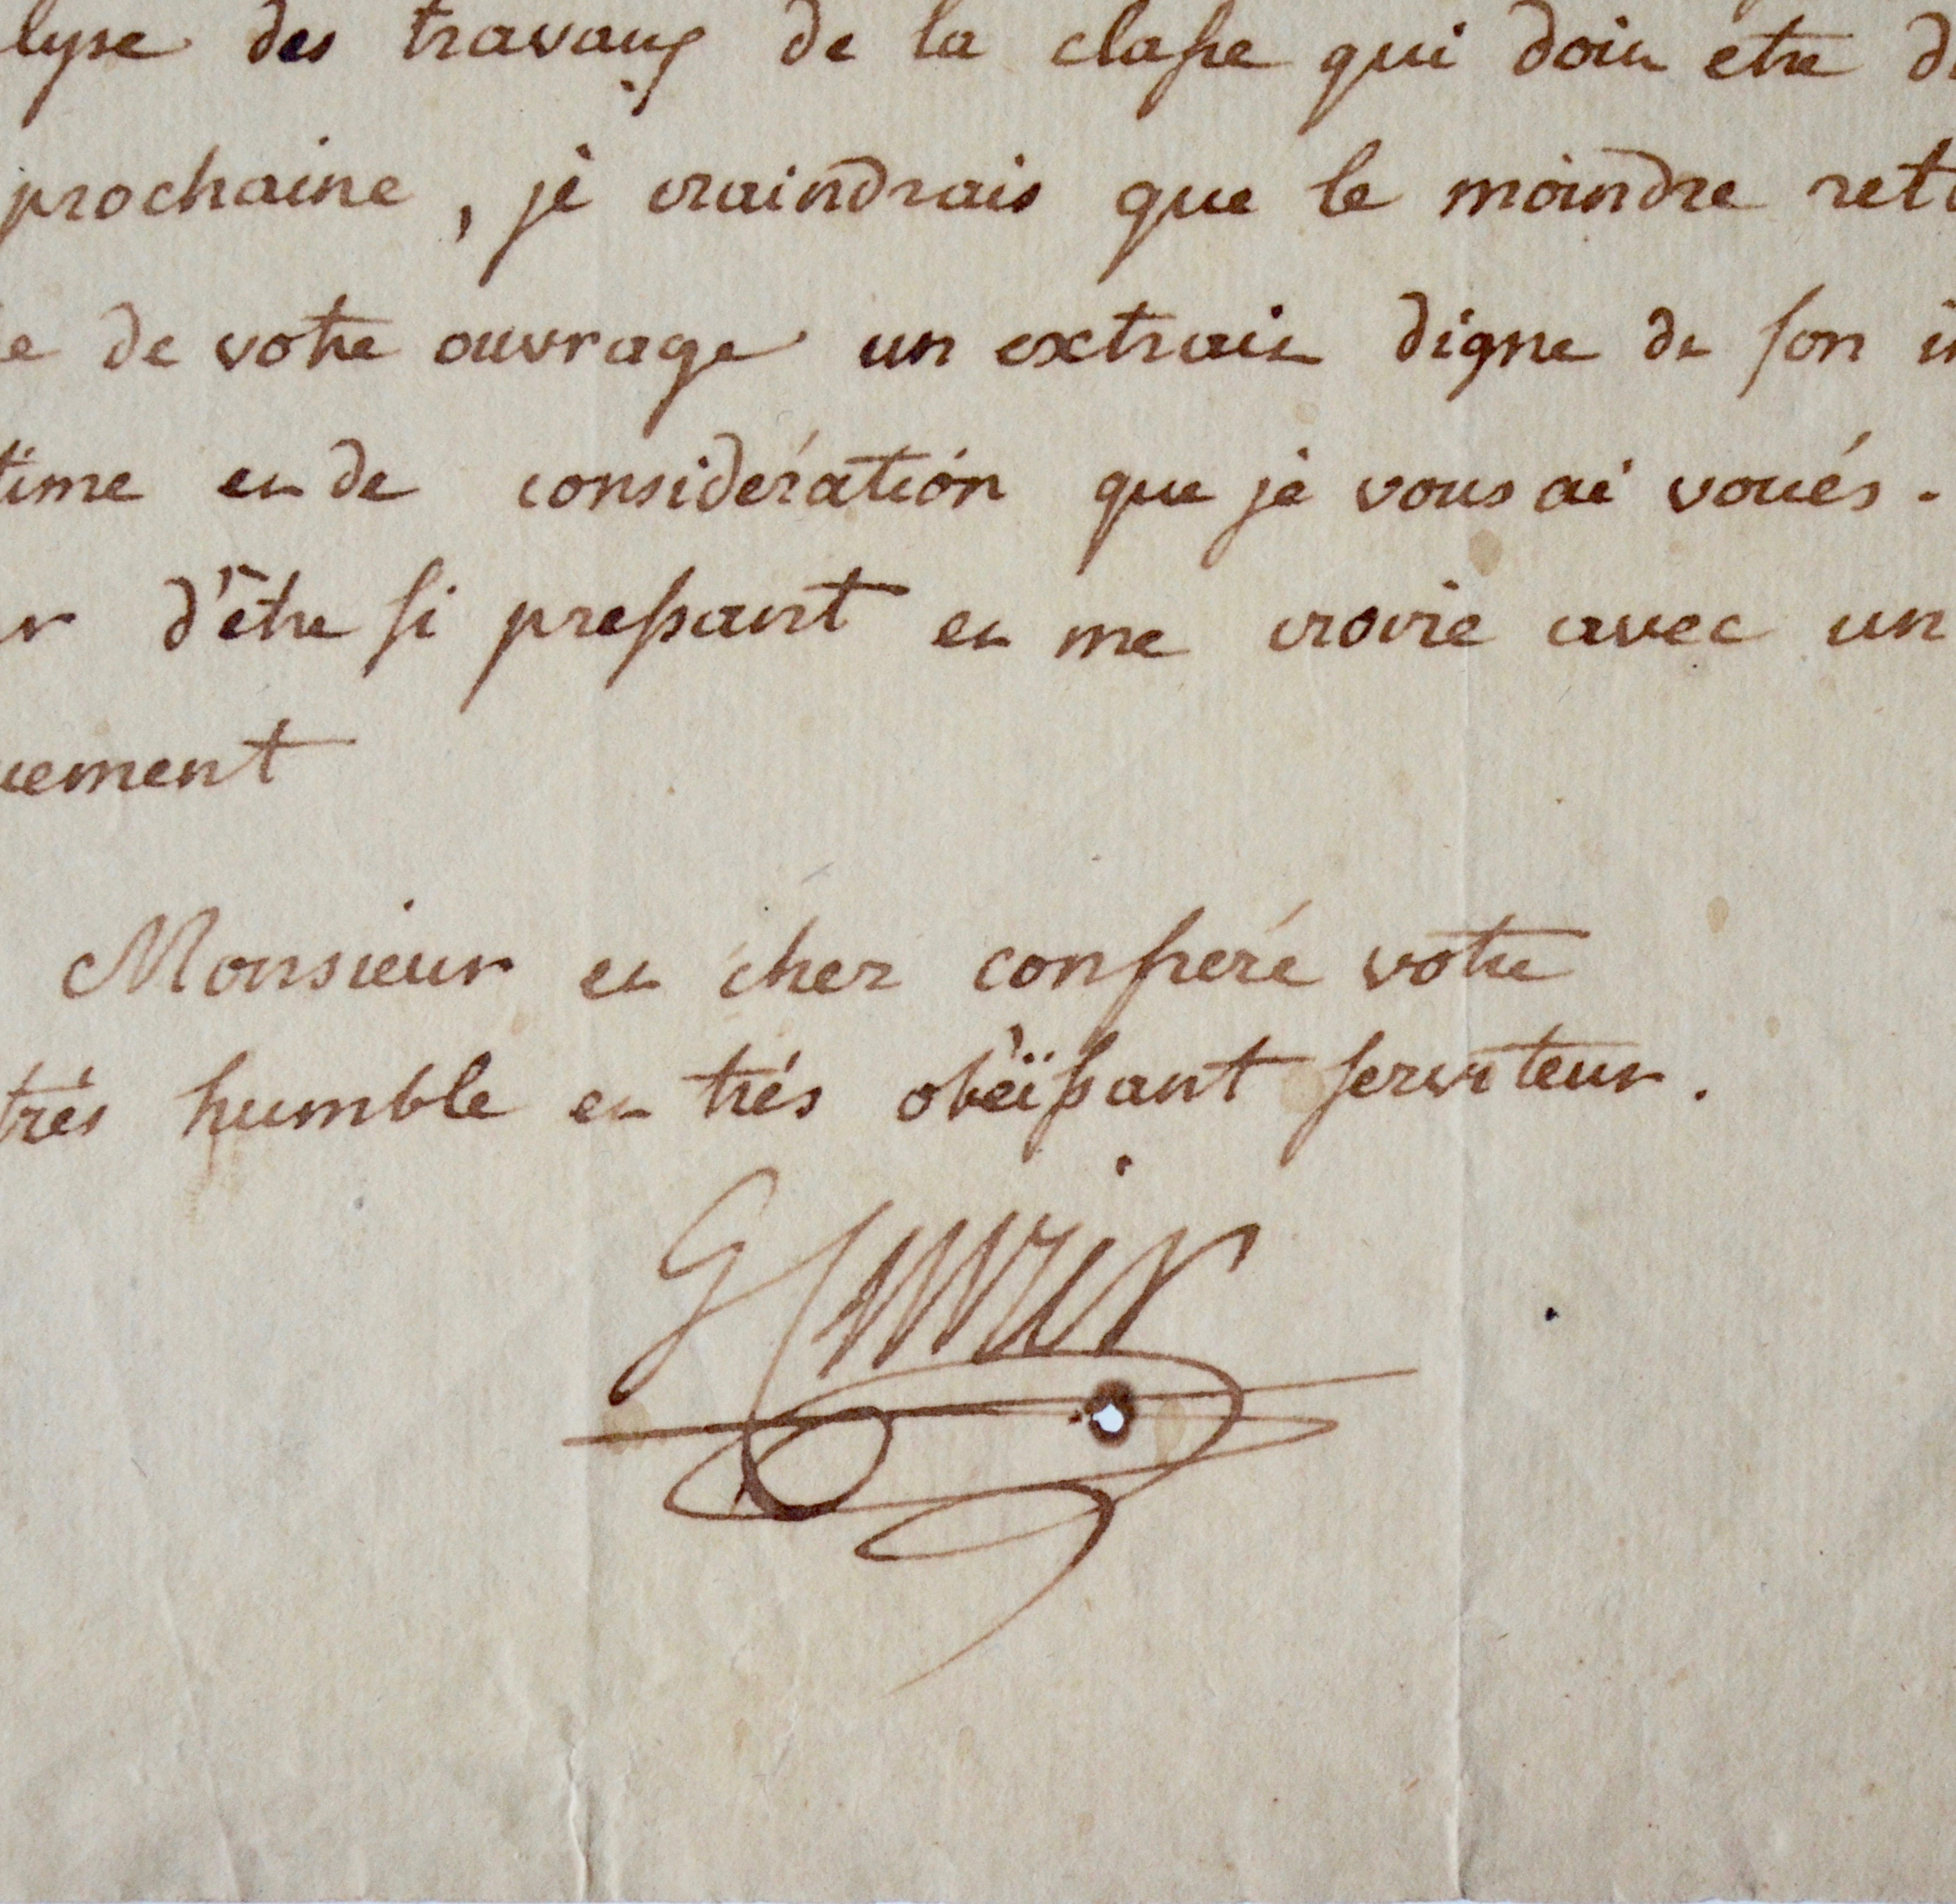 lyse des travaux de la classe qui doit etre d
prochaine, je craindrais que le moindre ret
e de votre ouvrage un extrait digne de son i
time et de considération que je vous ai voués.
r d'être si pressant et me croire avec un
uement
Monsieur et cher confrere votre
très humble et très obéissant serviteur.
G Cuvier